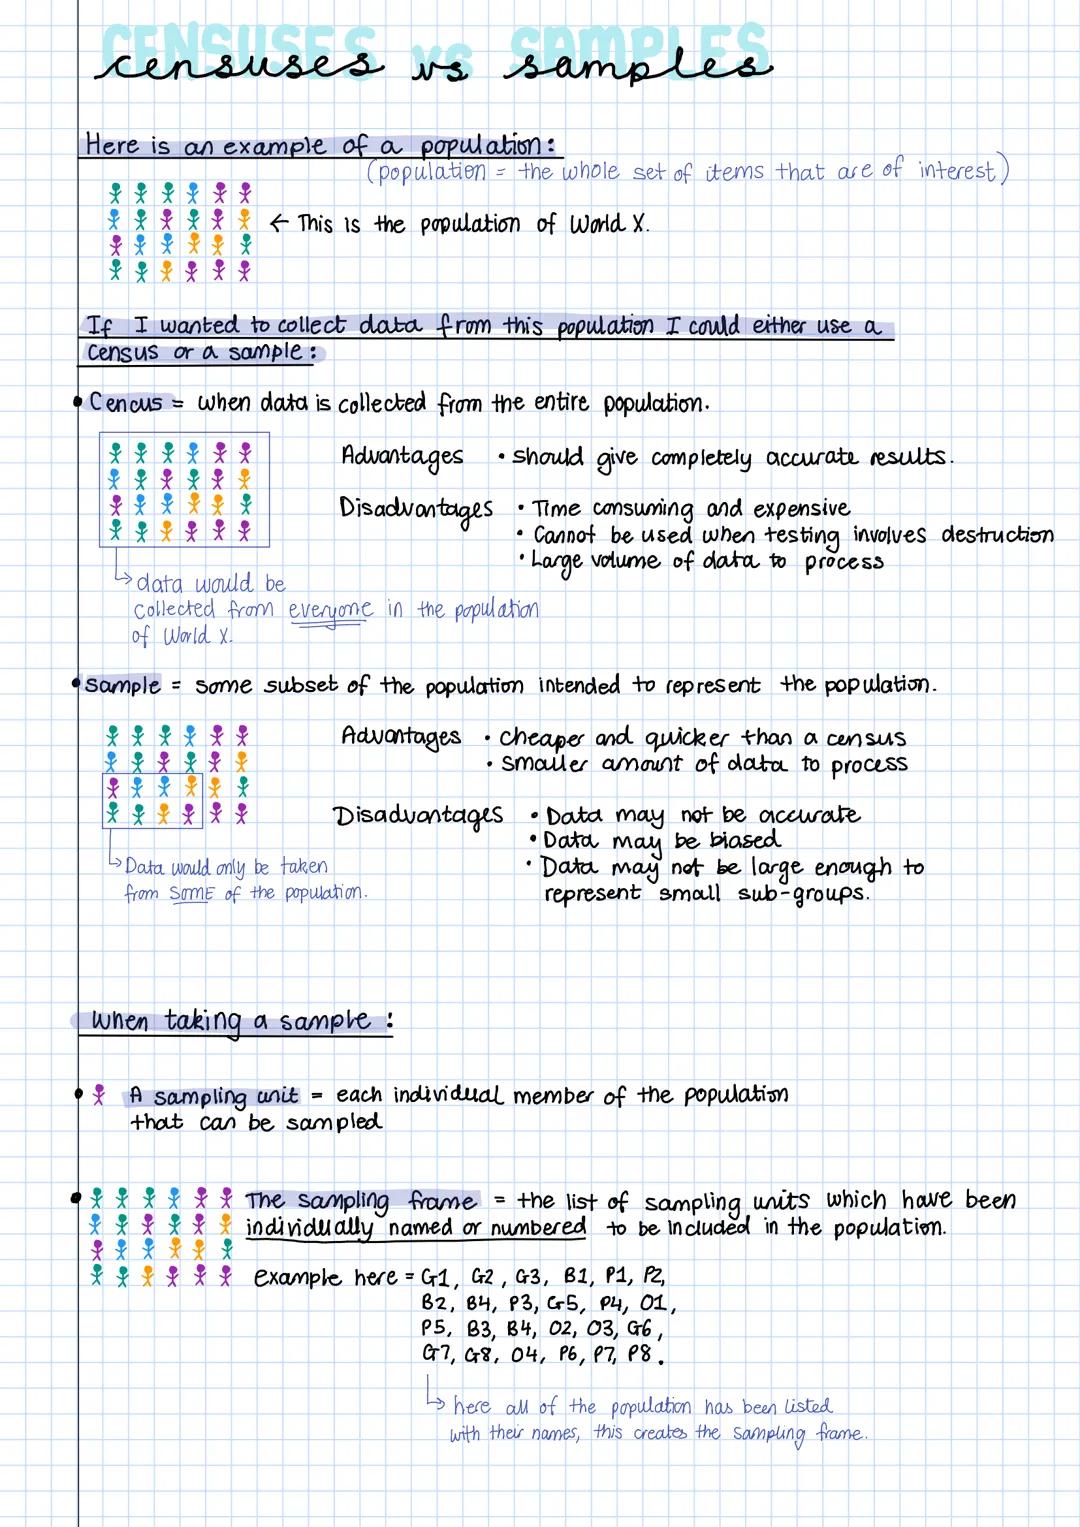 CENSUSES vs SAMPLES
censuses vs samples
Here is an example of a population:
(population = the whole set of items that are of interest)
← This is the population of World X.
If I wanted to collect data from this population I could either use a
census or a sample:
• Cencus = when data is collected from the entire population.
Advantages • should give completely accurate results.
Disadvantages • Time consuming and expensive
• Cannot be used when testing involves destruction
• Large volume of data to process
↳ data would be
collected from everyone in the population
of World X.
• sample = some subset of the population intended to represent the population.
Advantages • cheaper and quicker than a census
• smaller amount of data to process
Disadvantages • Data may not be accurate
• Data may be biased
• Data may not be large enough to
represent small sub-groups.
↳ Data would only be taken
from SOME of the population.
When taking a sample:
• A sampling unit = each individual member of the population
that can be sampled
• The sampling frame = the list of sampling units which have been
individually named or numbered to be included in the population.
example here = G1, G2, G3, B1, P1, P2,
B2, B4, P3, G5, P4, O1,
P5, B3, B4, O2, O3, G6,
G7, G8, O4, P6, P7, P8.
↳ here all of the population has been listed
with their names, this creates the sampling frame.